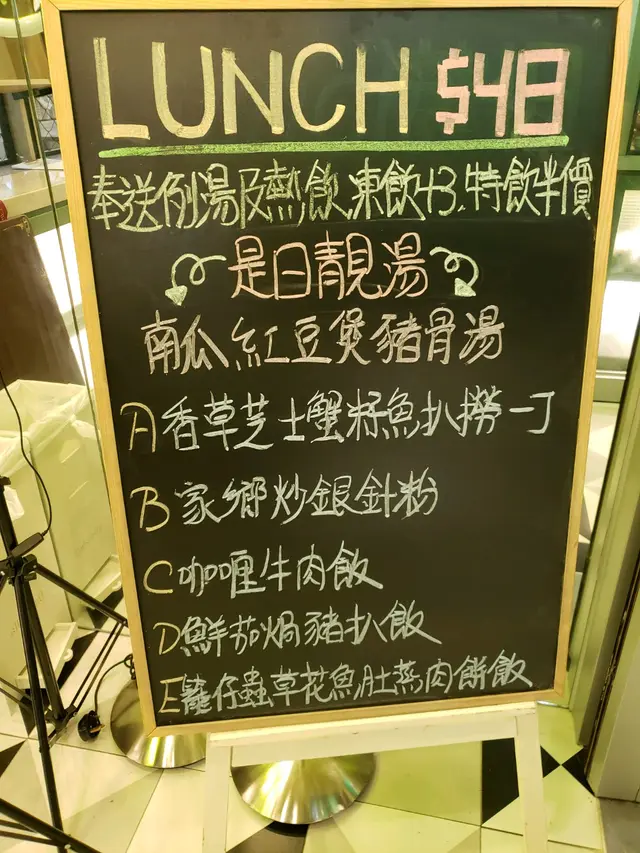 LUNCH $48
奉送例湯及熱飲,凍飲+3,特飲半價
是日靚湯
南瓜紅豆煲豬骨湯
A香草芝士蟹籽魚扒撈一丁
B家鄉炒銀針粉
C咖喱牛肉飯
D鮮茄焗豬扒飯
E籠仔蟲草花魚肚蒸肉餅飯